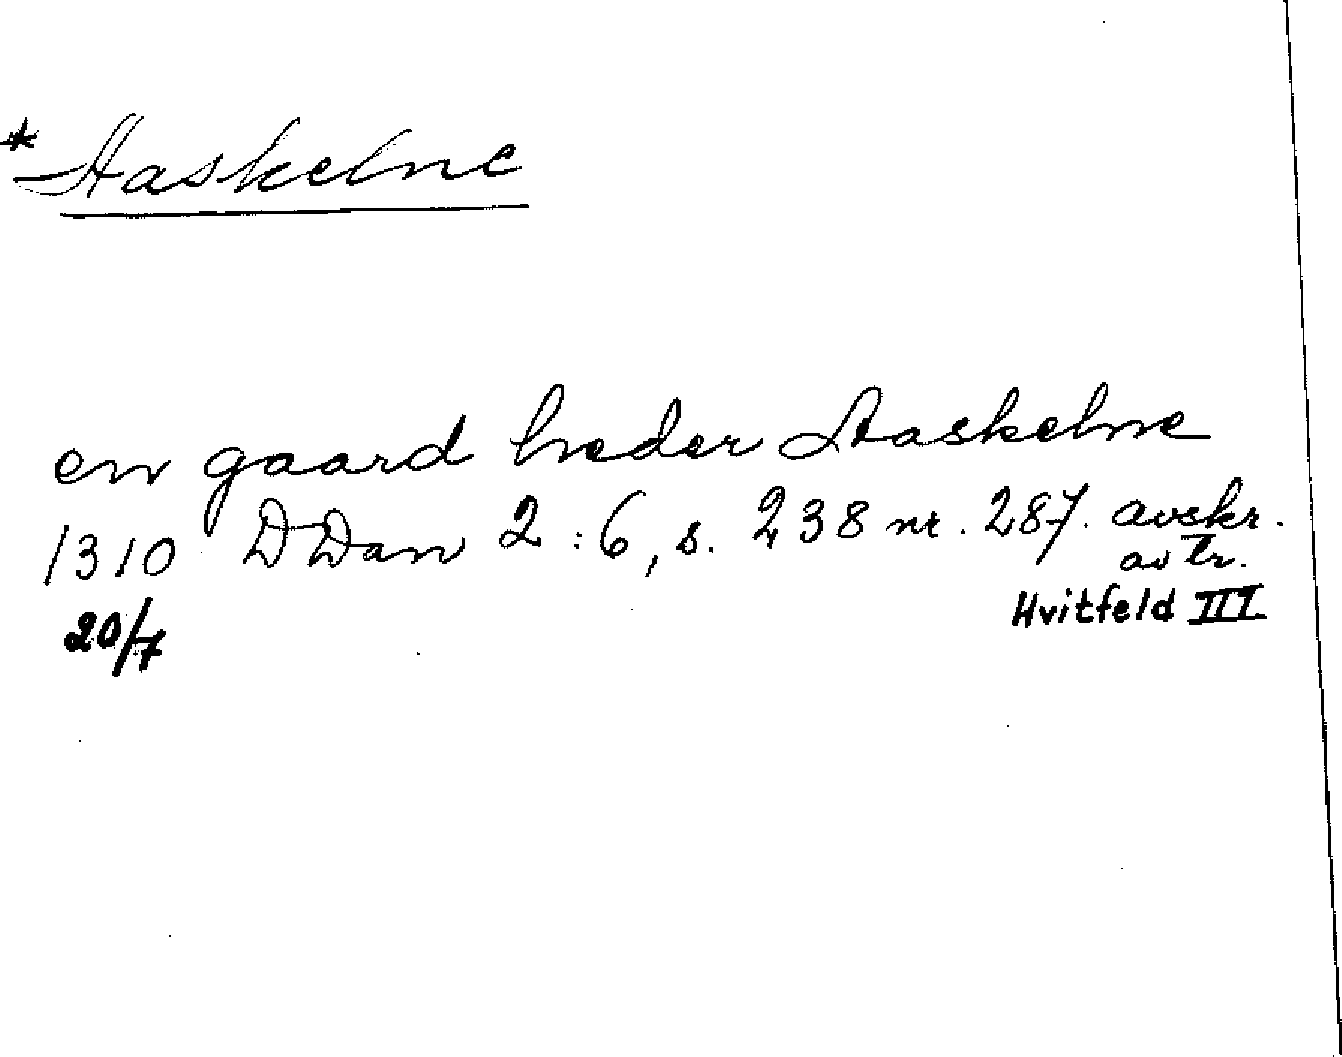 * Haskelne
en gaard heder Haskelne
1310 DDan 2:6, s. 238 nr. 287. avskr.
av tr.
20/7 Hvitfeld III